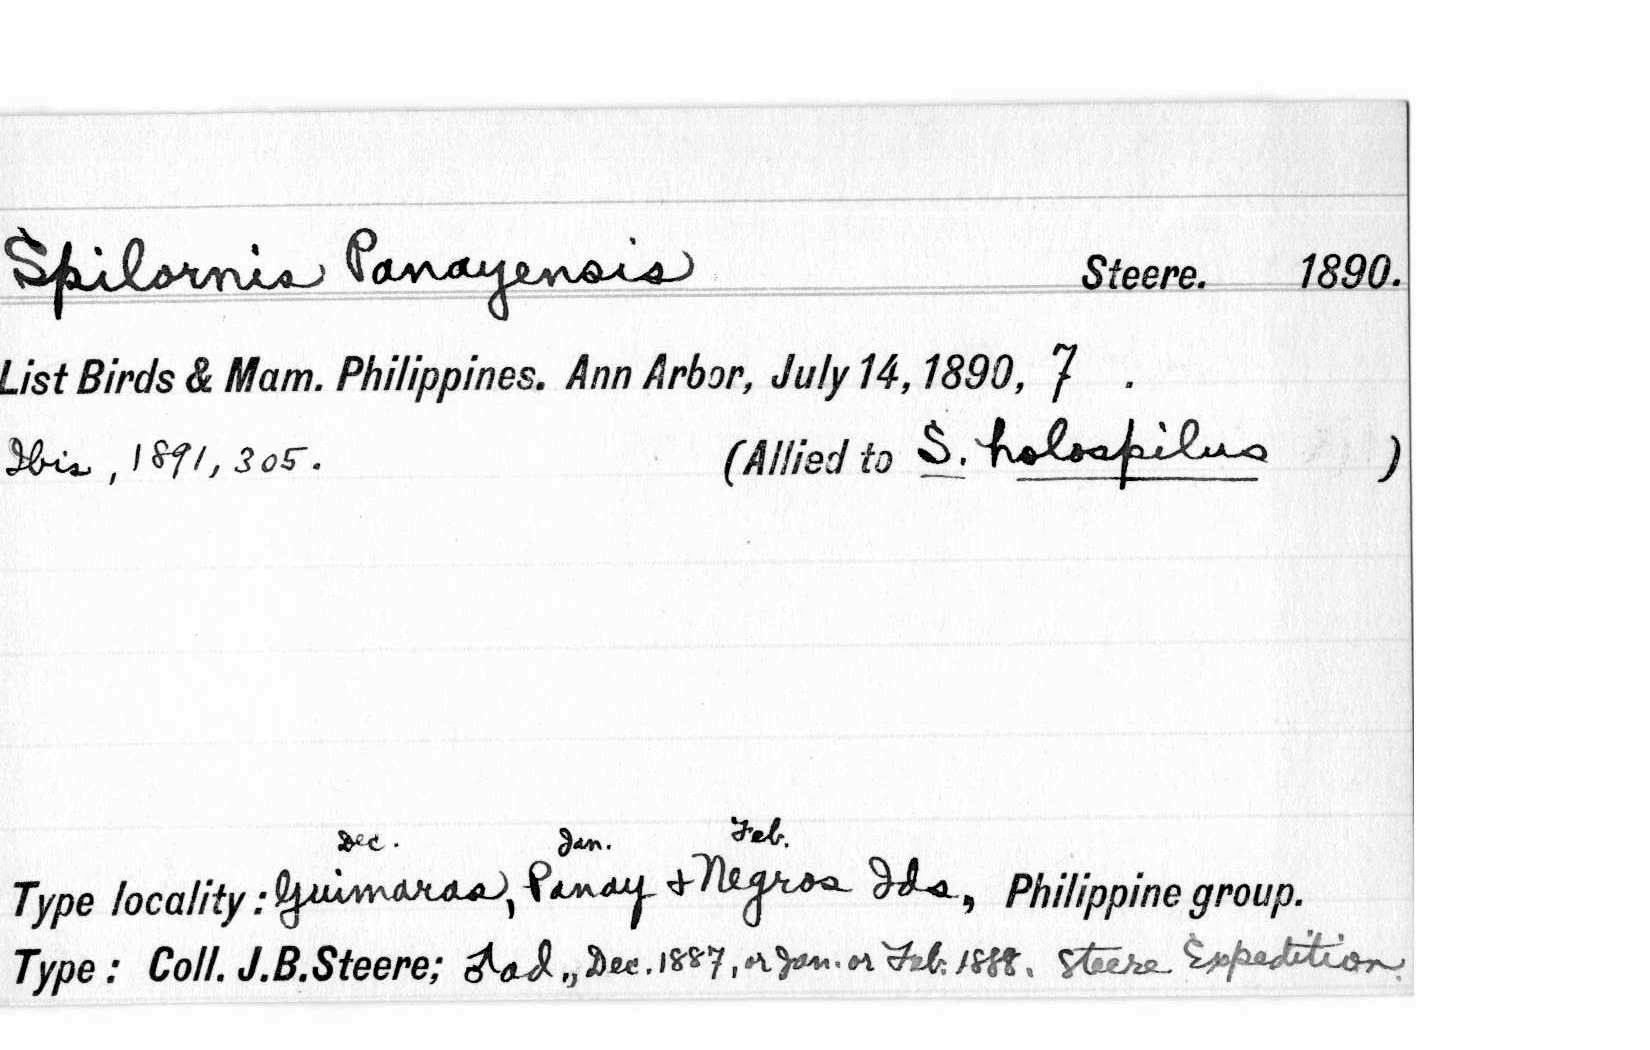 Spilornis Panayensis Steere. 1890.
List Birds & Mam. Philippines. Ann Arbor, July 14, 1890, 7 .
Ibis, 1891, 305. (Allied to S. holospilus )
Dec. Jan. Feb.
Type locality: Guimaras, Panay + Negros Ids, Philippine group.
Type: Coll. J.B.Steere; ♂ ad., Dec. 1887, or Jan. or Feb. 1888. Steere Expedition.